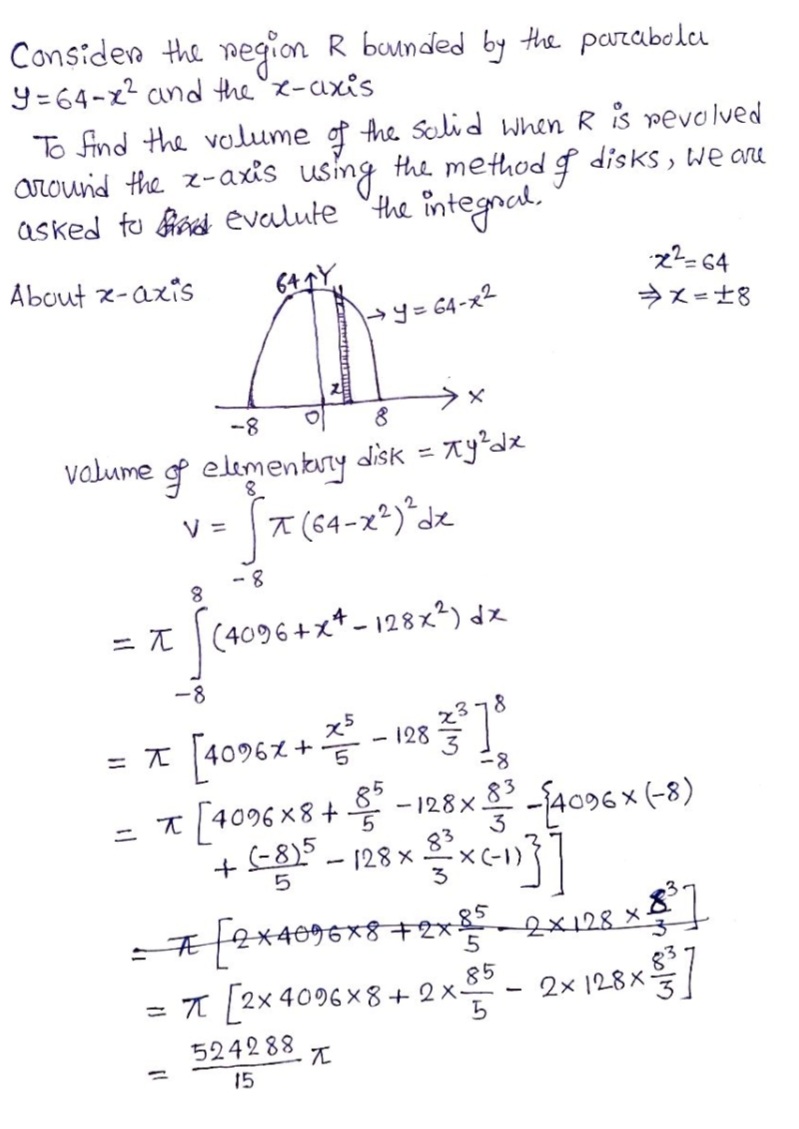 Consider the region R bounded by the parabola
y=64-x² and the x-axis
To find the volume of the solid when R is revolved
around the x-axis using the method of disks, we are
asked to evalute the integral.
About x-axis
64 Y
→ y = 64-x²
x²=64
⇒ x = ±8
x
-8 0 8 X
volume of elementary disk = πy²dx
V = ∫₋₈⁸ π (64-x²)² dx
= π ∫₋₈⁸ (4096+x⁴-128x²) dx
= π [4096x + x⁵/5 - 128 x³/3]₋₈⁸
= π [4096×8 + 8⁵/5 - 128× 8³/3 - {4096×(-8)
+ (-8)⁵/5 - 128 × 8³/3 ×(-1)}]
= π [2×4096×8 + 2× 8⁵/5 - 2×128 × 8³/3]
= π [2×4096×8 + 2× 8⁵/5 - 2×128× 8³/3]
= 524288/15 π